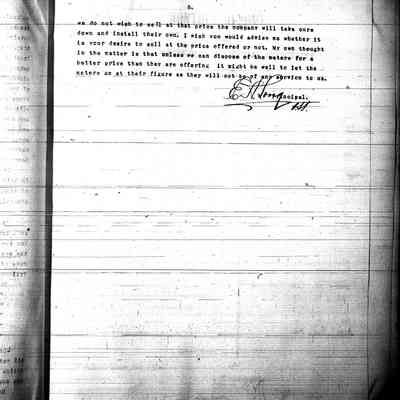 2.
we do not wish to sell at that price the company will take ours
down and install their own. I wish you would advise me whether it
is your desire to sell at the price offered or not. My own thought
in the matter is that unless we can dispose of the meters for a
better price than they are offering it might be well to let the
meters go at their figure as they will not be of any service to us.
Principal.